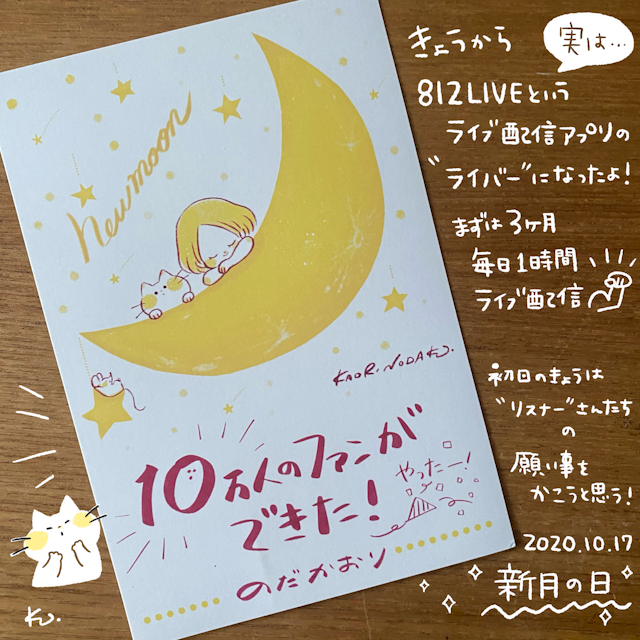 New moon
KAORI NODA K.
10万人のファンが
できた!
やったー!
のだかおり
きょうから
実は…
812LIVEという
ライブ配信アプリの
"ライバー"になったよ!
まずは3ヶ月
毎日1時間
ライブ配信
初日のきょうは
"リスナー"さんたち
の
願い事を
かこうと思う!
2020.10.17
新月の日